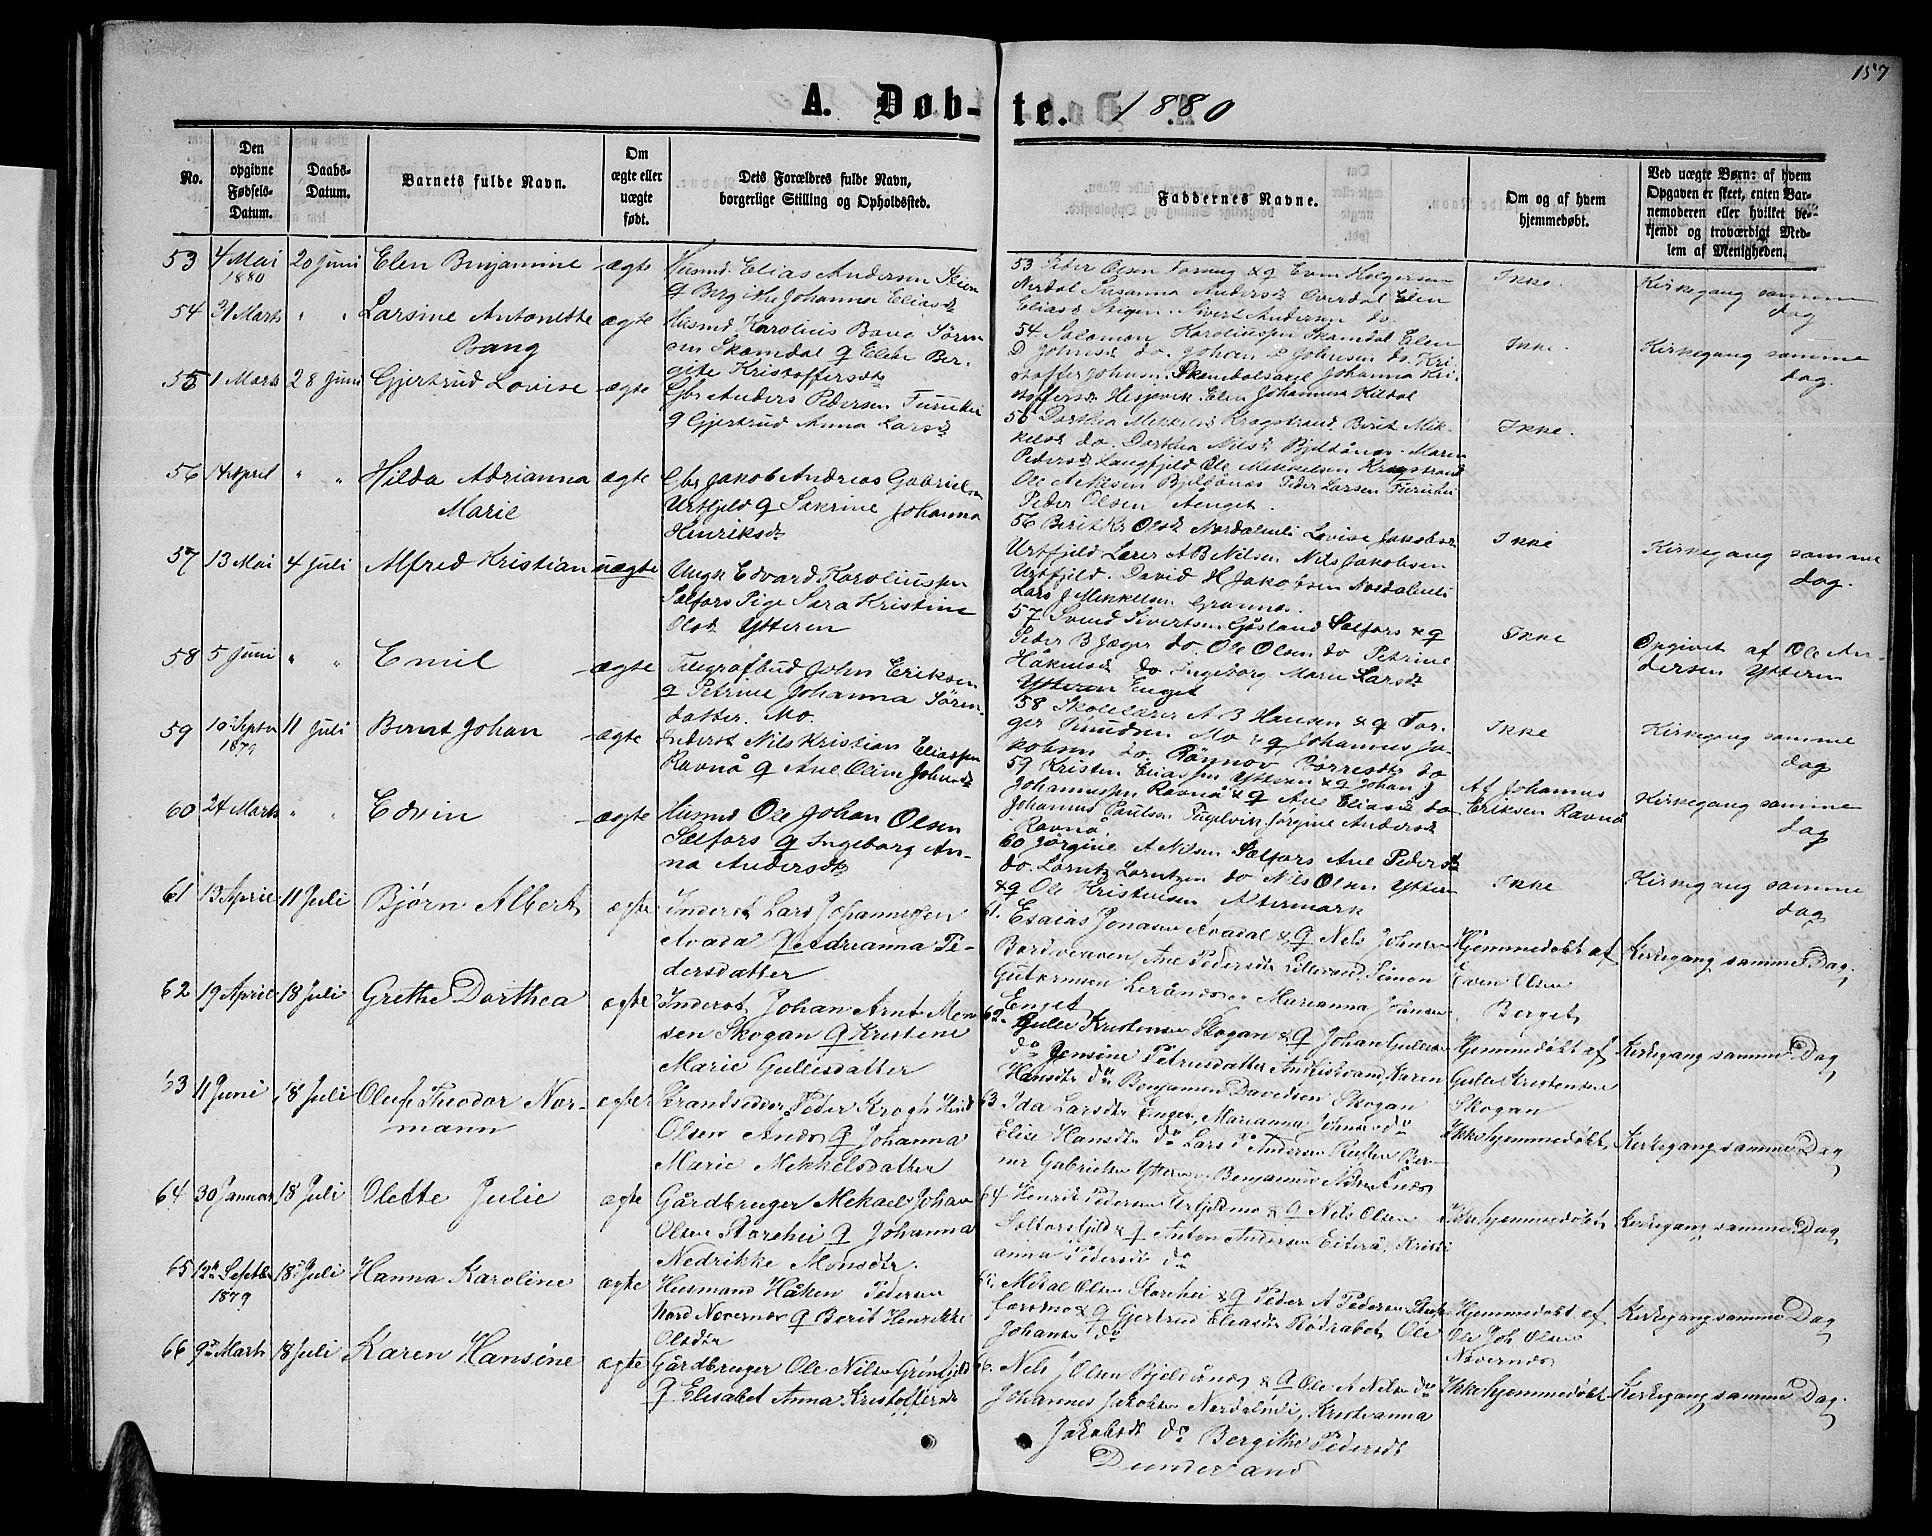 157
A. Døb- te. 1880
No.
Den opgivne Fødsels-Datum.
Daabs-Datum.
Barnets fulde Navn.
Om ægte eller uægte født.
Dets Forældres fulde Navn, borgerlige Stilling og Opholdssted.
Faddernes Navne.
Om og af hvem hjemmedøbt.
Ved uægte Børn: af hvem Opgaven er skeet, enten Barnemoderen eller hvilket bekjendt og troværdigt Medlem af Menigheden.
53 4 Mai 1880 20 Juni Elen Benjamine ægte
Husmd Elias Andersen Steien
& Bergithe Johanna Eliasd
53 Peder Olsen & Even Holgersen
Nerdal Susanna Andersd Overdal Elen
Eliasd Steien. Sivert Andersen do.
Ikke.
Kirkegang samme dag
54 21 Marts " " Larsine Antonette Bang ægte
Husmd Karolius Bang Sören-
sen Skamdal & Elen Ber-
gete Kristoffersdt
54. Salomon Karoliussen Skamdal Elen
D Johnsd do. Johan L Johnsen do. Kri-
stoffer Johnsen Johanna Kri-
stoffersd Hesjevik Elen Johannesd Kildal
Ikke.
Kirkegang samme dag.
55 1 Marts 28 Juni Gjertrud Lovise ægte
Gbr Anders Pedersen Furuhei
& Gjertrud Anna Larsd
55 Dorthea Mikkelsd Kragstrand Berit Mik-
kelsd do. Dorthea Nilsd Bjeldånes. Maren
Pedersd Langfjeld Ole Mikkelsen Kragstrand
Ole A Nilsen Bjeldånes Peder Larsen Furuhei
Peder Olsen Aenget.
Ikke.
56 14 April " " Hilda Adrianna Marie ægte
Gbr Jakob Andreas Gabrielsen
Urtfjeld & Sakrine Johanna
Henriksdt
56 Berit K Olsd Nordalsli Lovise Jakobsd
Urtfjeld Lærer A B Nilsen Nils Jakobsen
Urtfjeld. David H Jakobsen Nordalsli
Lars J Mikkelsen Grannes.
Ikke
Kirkegang samme dag.
57 13 Mai 4 Juli Alfred Kristian uægte
Ungk Edvard Karoliussen
Selfors Pige Sara Kristine
Olsd Ytteren
57 Svend Sivertsen Gåsland Selfors & &
Peder B Jæger do. Ole Olsen do Petrine
Håkensd do Ingeborg Marie Larsd
Ytteren Enget
Ikke
Opgivet af Ole An-
dersen Ytteren
58 5 Juni " " Emil ægte
Telegrafbud John Eriksen
& Petrine Johanna Sören-
datter. Mo.
58 Skolelærer A B Hansen & & Tor-
ger Knudsen Mo & & Johannes Ja-
kobsen do. Rönnov Börresdt do
Ikke
Kirkegang samme dag
59 10 Septbr 1879 11 Juli Bernt Johan ægte
Inderst Nils Kristian Eliassen
Ravnå & Ane Oline Johnsd
59 Kristen Eliassen Ytteren & & Johan J
Johannessen Ravnå & & Ane Eliasd do
Johannes Paulsen Jörgine Andersd
Ravnå.
Af Johannes
Eriksen Ravnå
Kirkegang samme dag
60 24 Marts " " Edvin ægte
Husmd Ole Johan Olsen
Selfors & Ingeborg An-
na Andersdt
60 Jörgine A Nilsen Selfors Ane Pedersdt
do. Lorntz Lorntzen do Nils Olsen Ytteren
& & Ole Kristensen Altermark
Ikke
Kirkegang samme dag
61 13 April 11 Juli Bjørn Albert ægte
Inderst Lars Johannesen
Avadal & Adrianna Pe-
dersdatter
61. Esaias Jonasen Avadal & & Nils Johnsen
Bordvedaven, Ane Pedersdtr Lillevand, Simon
Gutormsen Marianna Jonsen
Enget
Hjemmedøbt af
Even Olsen
Berget
Kirkegang samme Dag.
62 19 April 18 Juli Grethe Dorthea ægte
Inderst Johan Arnt Mon-
sen Skogan & Kristene
Marie Gullesdatter
62. Gulle Kristensen Skogan & & Johan Gullesen
do Jensine Petersdatter Karen
Hansdtr do Benjamin Davidsen Skogan
Hjemmedøbt af
Gulle Kristensen
Skogan
Kirkegang samme Dag,
63 11 Juni 18 Juli Oluf Theodor Nor-
mann ægte
Strandsidder Peder Krogh Hind
Olsen Andås & Johanna
Marie Mekkelsdatter
63. Ida Larsdtr Enget, Marianna Johnsen do
Elise Hansdtr do Lars P Andersen Ber-
ner Gabrielsen Ytteren Benjamin Andås
Ikke hjemmedøbt
Kirkegang samme Dag
64 30 Januar 18 Juli Olette Julie ægte
Gårdbruger Mekael Johan
Olsen Storehei & Johanna
Nedrikke Monsdtr.
64 Henrik Pedersen Urfjeldmo & & Nils Olsen
Selforsfjeld & & Anton Andersen Eiterå, Kristi
anna Pedersdtr do
Ikke hjemmedøbt
Kirkegang samme Dag
65 12te Septbr 1879 18 Juli Hanna Karoline ægte
Husmand Håken Pedersen
Nord Nævernes & Berit Henrikke
Olsdtr
65. Mikal Olsen Storehei & & Peder A Pedersen
& & Gjertrud Eliasdtr Rödrabet, Ole
Johansen do
Hjemmedøbt af
Ole Joh Olsen
Nævernes
Kirkegang samme Dag
66 9de Marts 18 Juli Karen Hansine ægte
Gårdbruger Ole Nilsen Grönfjeld
& Elisabet Anna Kristoffersdtr
66. Nils J Olsen Bjeldånes & & Ole A Nilsen do
Johannes Jakobsen Nordalsli, Kristianna
Jakobsdt do Bergithe Pedersdt
Dunderland
Ikke hjemmedøbt
Kirkegang samme Dag.